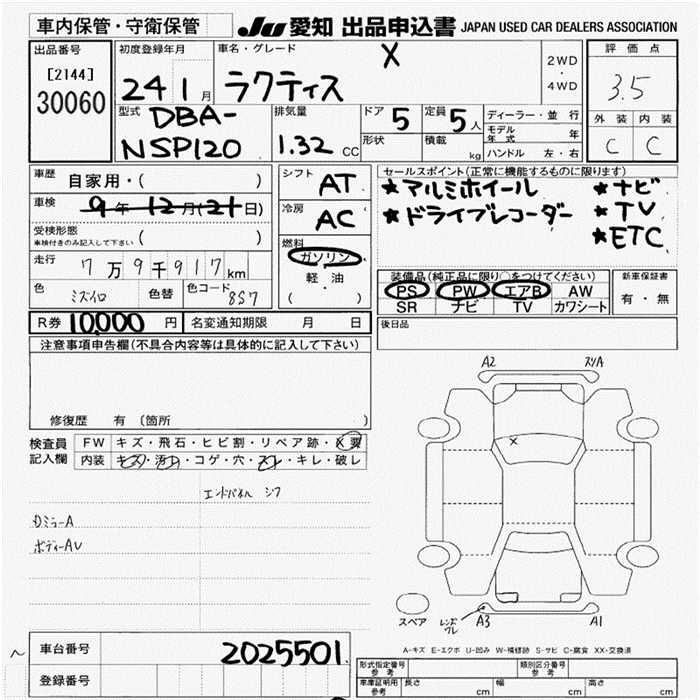 車内保管・守衛保管
JU 愛知 出品申込書 JAPAN USED CAR DEALERS ASSOCIATION
出品番号
[2144]
30060
初度登録年月
24 1 月
車名・グレード
X
ラクティス
2WD
・
4WD
評価点
3.5
外装 内装
C C
型式 DBA-
NSP120
排気量
1.32 CC
ドア 5
定員 5 人
形状
積載 kg
ディーラー・並行
モデル年式 年
ハンドル 左・右
車歴 自家用・( )
車検 9年12月(21日)
受検形態
車検付きのみ記入して下さい ( )
走行 7万9千917km
色 ミズイロ 色替 色コード 8S7
シフト AT
冷房 AC
燃料
ガソリン
軽・油
( )
セールスポイント(正常に機能するものに限ります)
★アルミホイール ★ナビ
★ドライブレコーダー ★TV
★ETC
装備品(純正品に限り○をつけてください)
PS PW エアB AW
SR ナビ TV カワシート
新車保証書
有・無
R券 10,000 円 名変通知期限 月 日
後日品
注意事項申告欄(不具合内容等は具体的に記入して下さい)
修復歴 有 (箇所 )
検査員記入欄
FW キズ・飛石・ヒビ割・リペア跡・X要
内装 キズ・汚れ・コゲ・穴・スレ・キレ・破レ
エンドパネル シワ
Dミラー A
ボディー AU
A2
スリA
×
スペア
A3
A1
A-キズ E-エクボ U-凹み W-補修跡 S-サビ C-腐食 XX-交換済
車台番号 2025501
登録番号
形式指定番号 参考
類別区分番号 参考
車庫証明用 参考 長さ cm 幅 cm 高さ cm